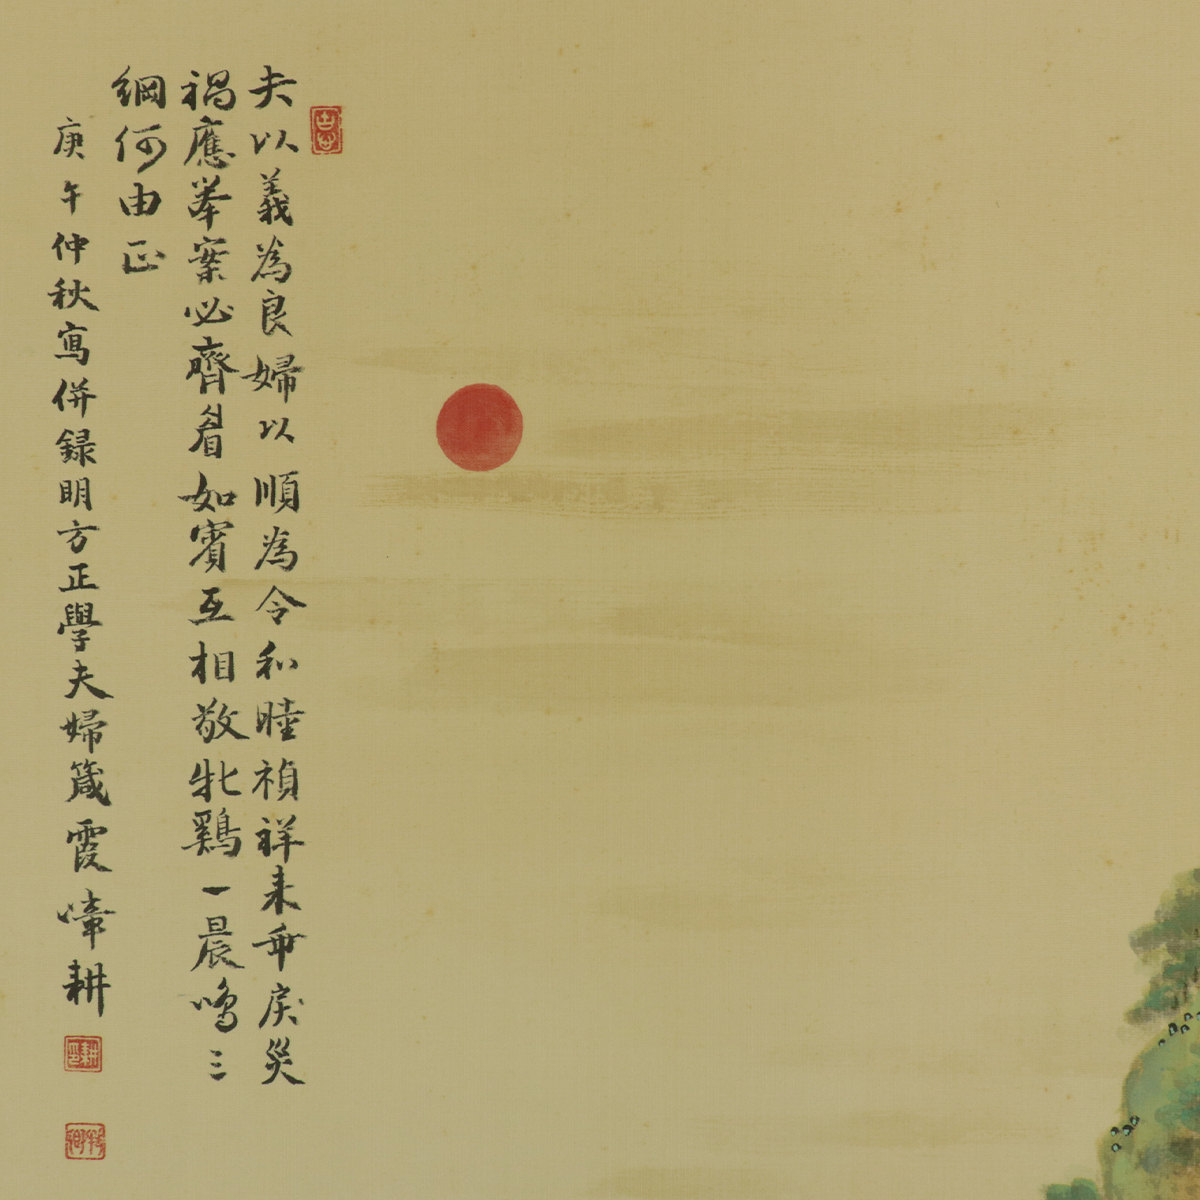 夫以義為良婦以順為令和睦禎祥来乖戾災
禍應举案必齊眉如賓互相敬牝鷄一晨鳴三
綱何由正
庚午仲秋寫併録明方正學夫婦箴霞嶂耕